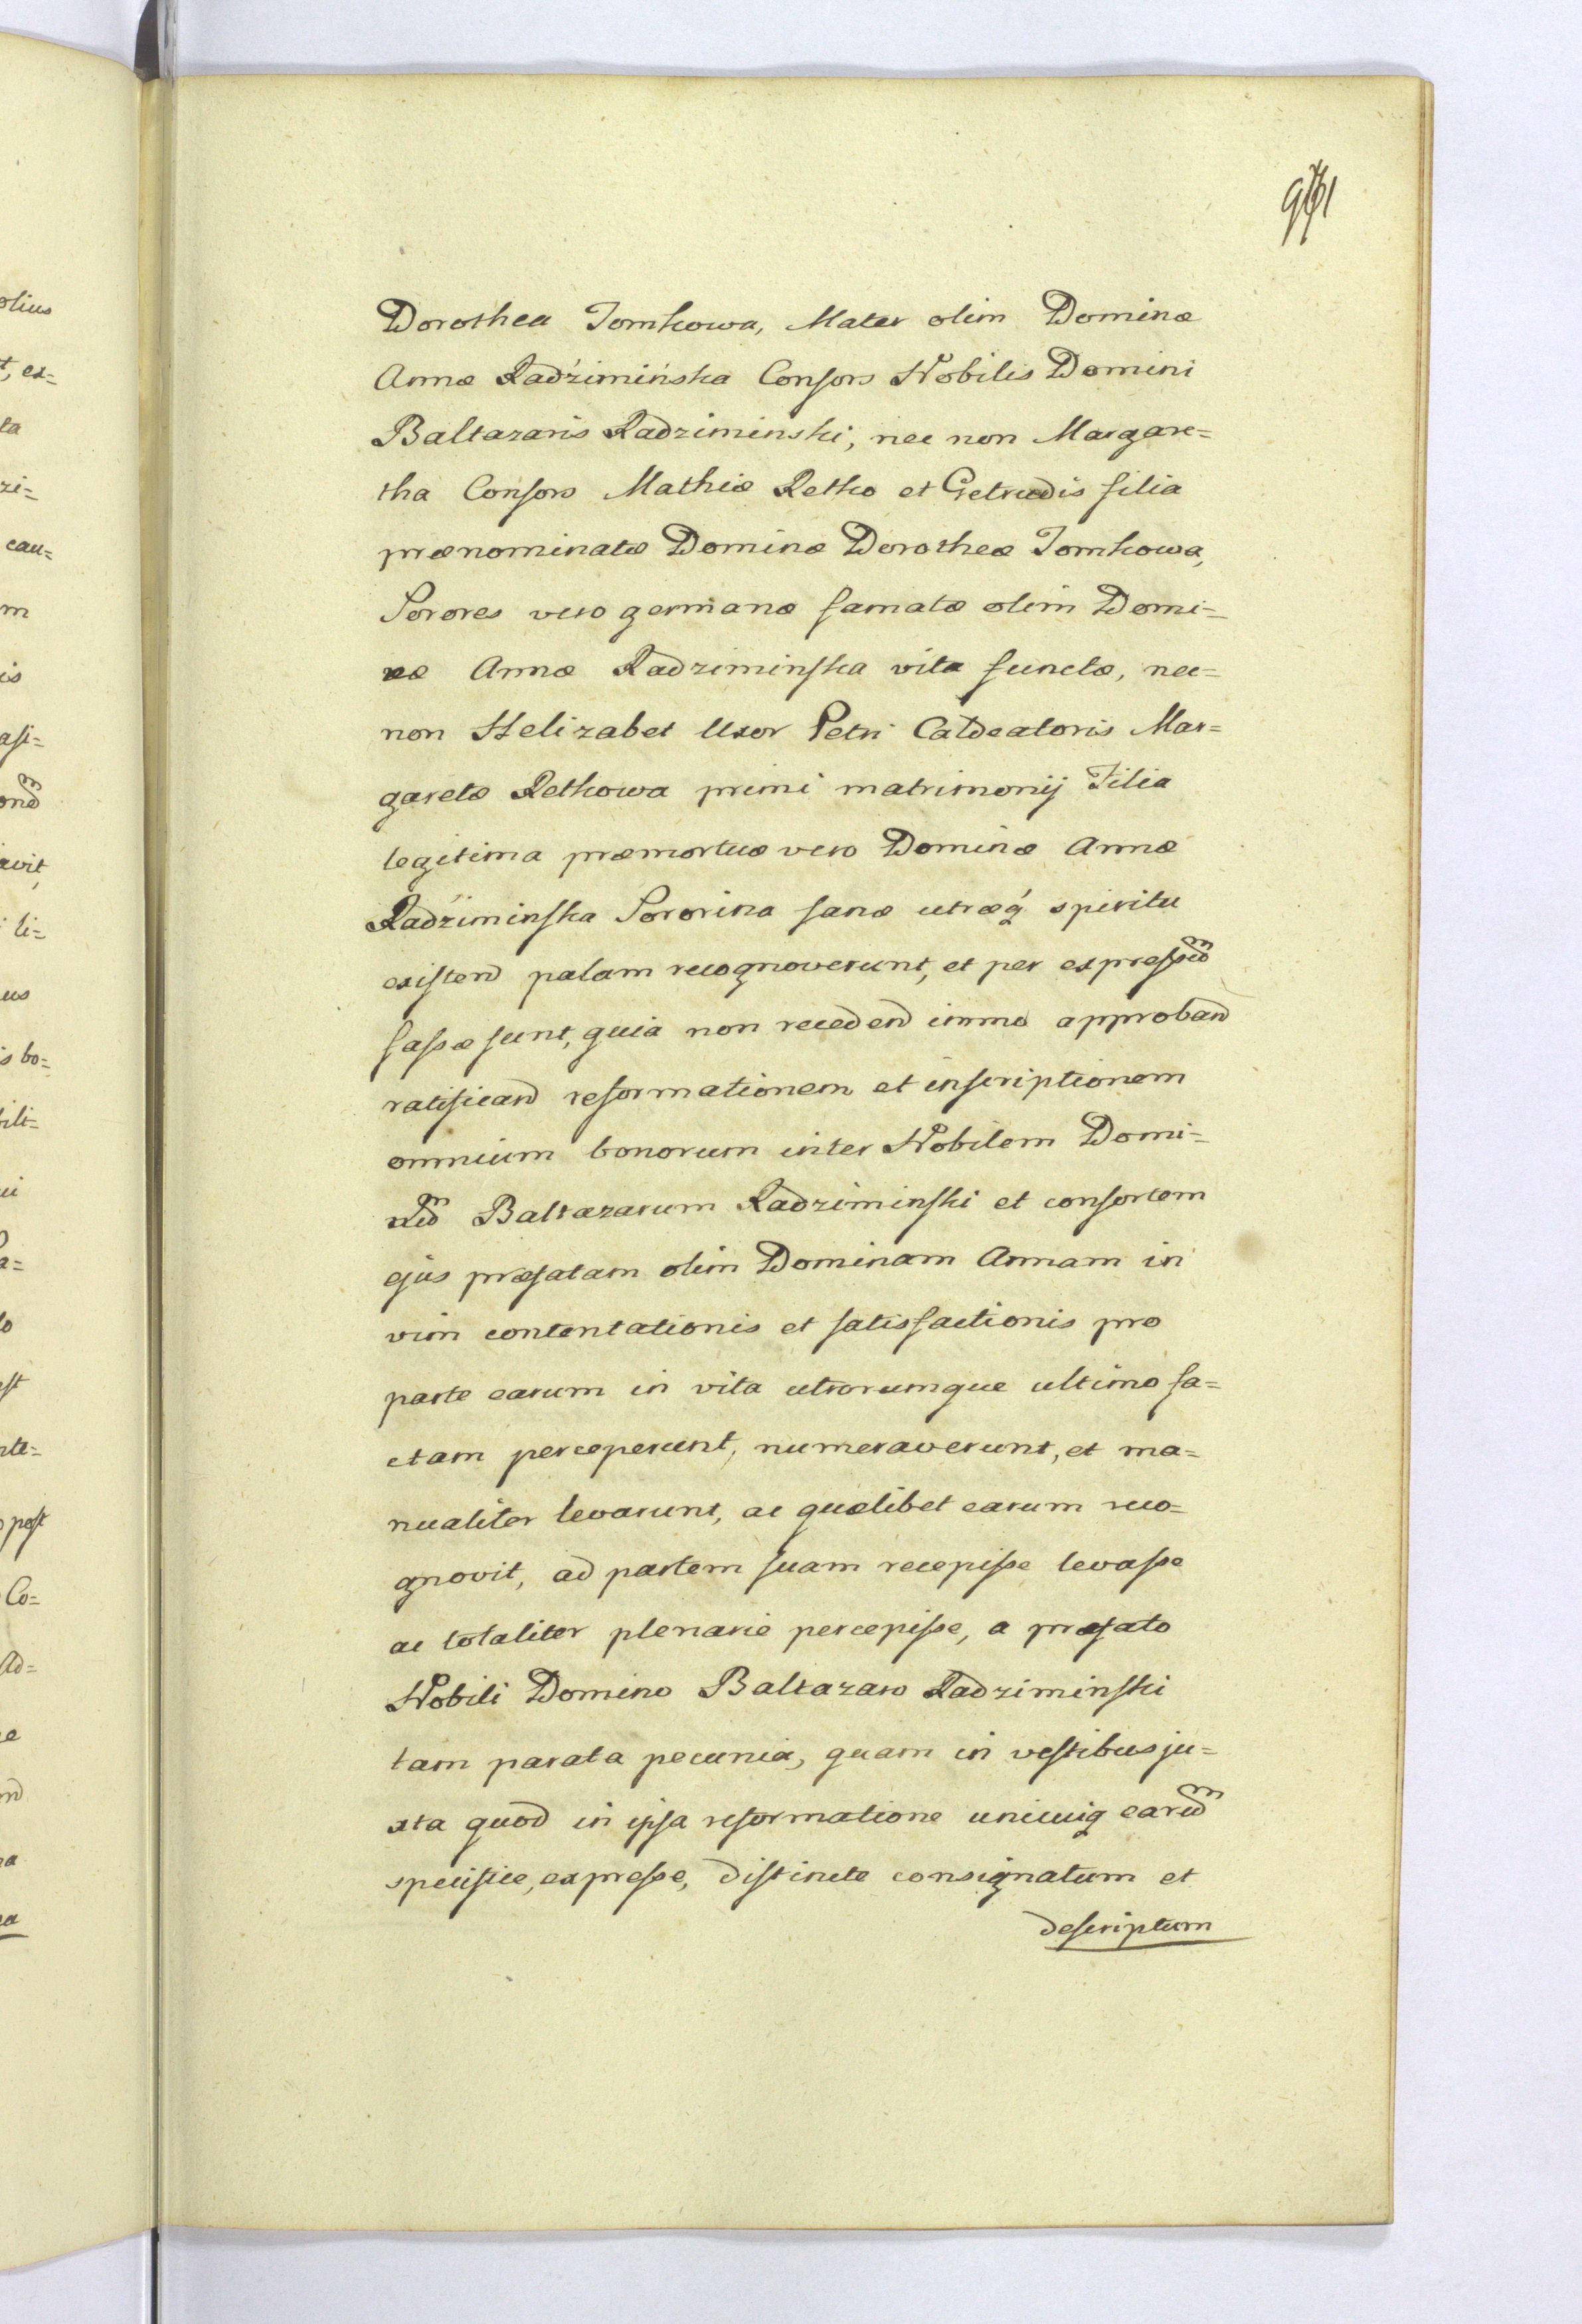 Dorothea Tomkowa, Mater olim Dominæ
Annæ Radźimińska Consors Nobilis Domini
Baltazaris Radziminski, nec non Margare=
tha Consors Mathiæ Retko et Getrudis filia
prænominatæ Dominæ Dorotheæ Tomkowa,
Sorores vero germanæ famatæ olim Domi=
næ Annæ Radziminska vita functæ, nec=
non Helizabet Uxor Petri Caldeatoris Mar=
garetæ Retkowa primi matrimonij Filia
legitima præmortuæ vero Dominæ Annæ
Radźiminska Sororina sanæ utræq́ spiritu
existend palam recognoverunt, et per expressũ
fassæ sunt, quia non recedend immo approband
ratificand reformationem et inscriptionem
omnium bonorum inter Nobilem Domi=
nũ Baltazarum Radziminski et consortem
ejus præfatam olim Dominam Annam in
vim contentationis et satisfactionis pro
parte earum in vita utrorumque ultimo fa=
ctam perceperunt, numeraverunt, et ma=
nualiter levarunt, ac quælibet earum reco=
gnovit, ad partem suam recepisse levasse
ac totaliter plenarie percepisse, a præfato
Nobili Domino Baltazaro Radziminski
tam parata pecunia, quam in vestibus ju=
xta quod in ipsa reformatione unicuiq earũ
specifice, expresse, distincte consignatum et
descriptum